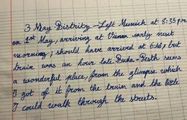 3 May Bistritz - Left Munich at 8:35 pm
on 1st May, arriving at Vienna early next
morning; should have arrived at 6:46, but
train was an hour late. Buda-Pesth seems
a wonderful place, from the glimpse which
I got of it from the train and the little
I could walk through the streets.